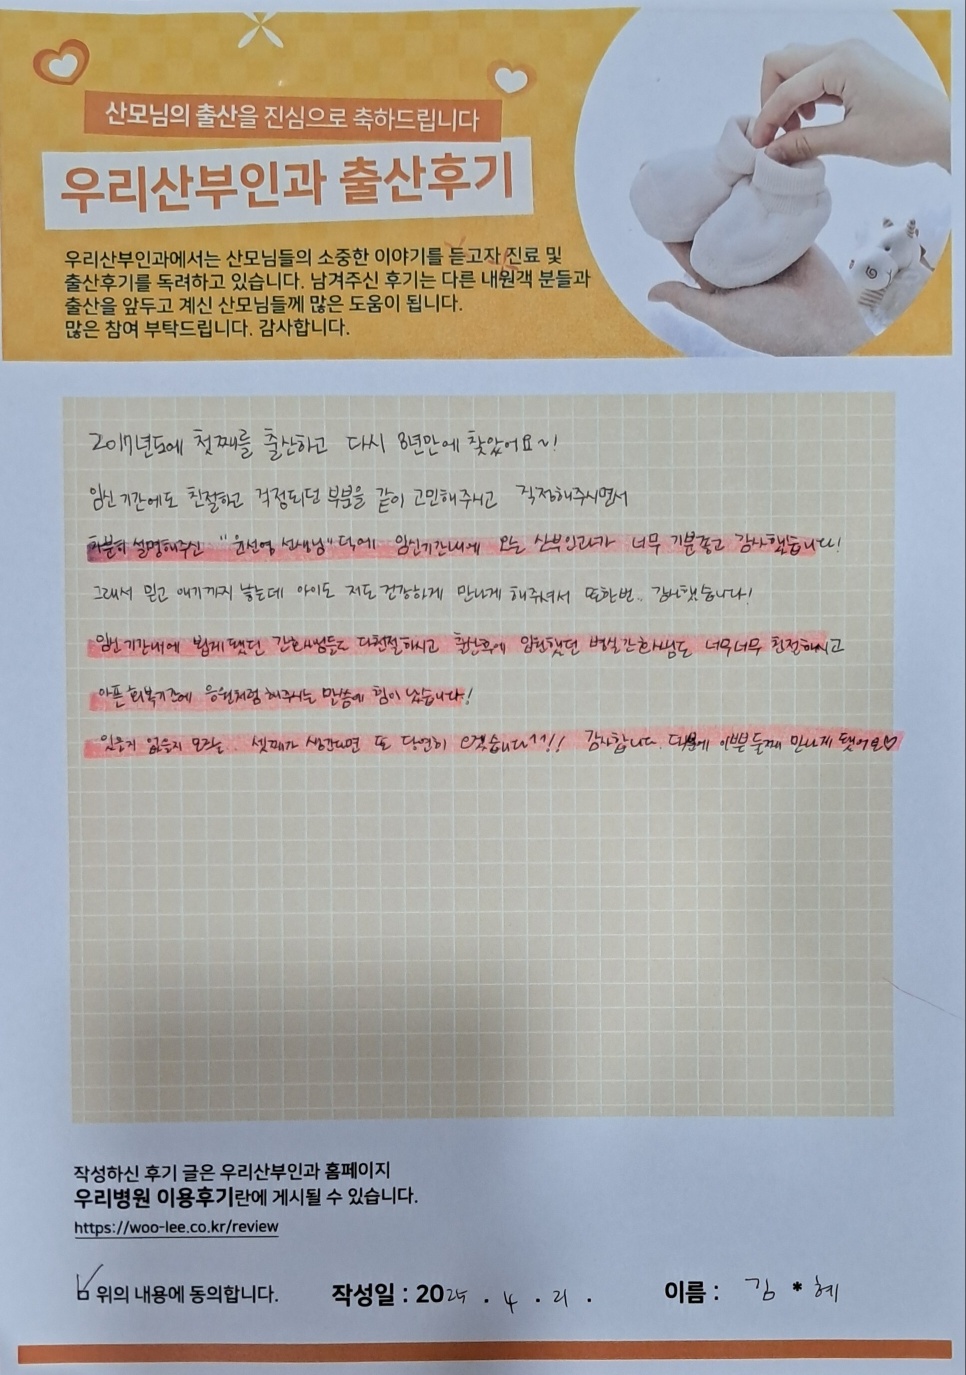 산모님의 출산을 진심으로 축하드립니다
우리산부인과 출산후기
우리산부인과에서는 산모님들의 소중한 이야기를 듣고자 진료 및
출산후기를 독려하고 있습니다. 남겨주신 후기는 다른 내원객 분들과
출산을 앞두고 계신 산모님들께 많은 도움이 됩니다.
많은 참여 부탁드립니다. 감사합니다.
2017년도에 첫째를 출산하고 다시 8년만에 찾았어요~!
임신기간에도 친절하고 걱정되던 부분을 같이 고민해주시고 걱정해주시면서
차분히 설명해주신 "윤선영 선생님" 덕에 임신기간내에 오는 산부인과가 너무 기분좋고 감사했습니다!
그래서 믿고 애기까지 낳는데 아이도 저도 건강하게 만나게 해주셔서 또한번.. 감사했습니다!
임신기간내에 뵙게됐던 간호사님들도 다친절하시고 출산후에 입원했던 병실간호사님도 너무너무 친절하시고
아픈 회복기간에 응원처럼 해주시는 말씀에 힘이 났습니다!
있을지 없을지 모르는.. 셋째가 생긴다면 또 당연히 오겠습니다^^!! 감사합니다. 덕분에 이쁜둘째 만나게 됐어요♡
작성하신 후기 글은 우리산부인과 홈페이지
우리병원 이용후기란에 게시될 수 있습니다.
https://woo-lee.co.kr/review
위의 내용에 동의합니다. 작성일 : 2025 . 4 . 21 . 이름 : 김 * 혜